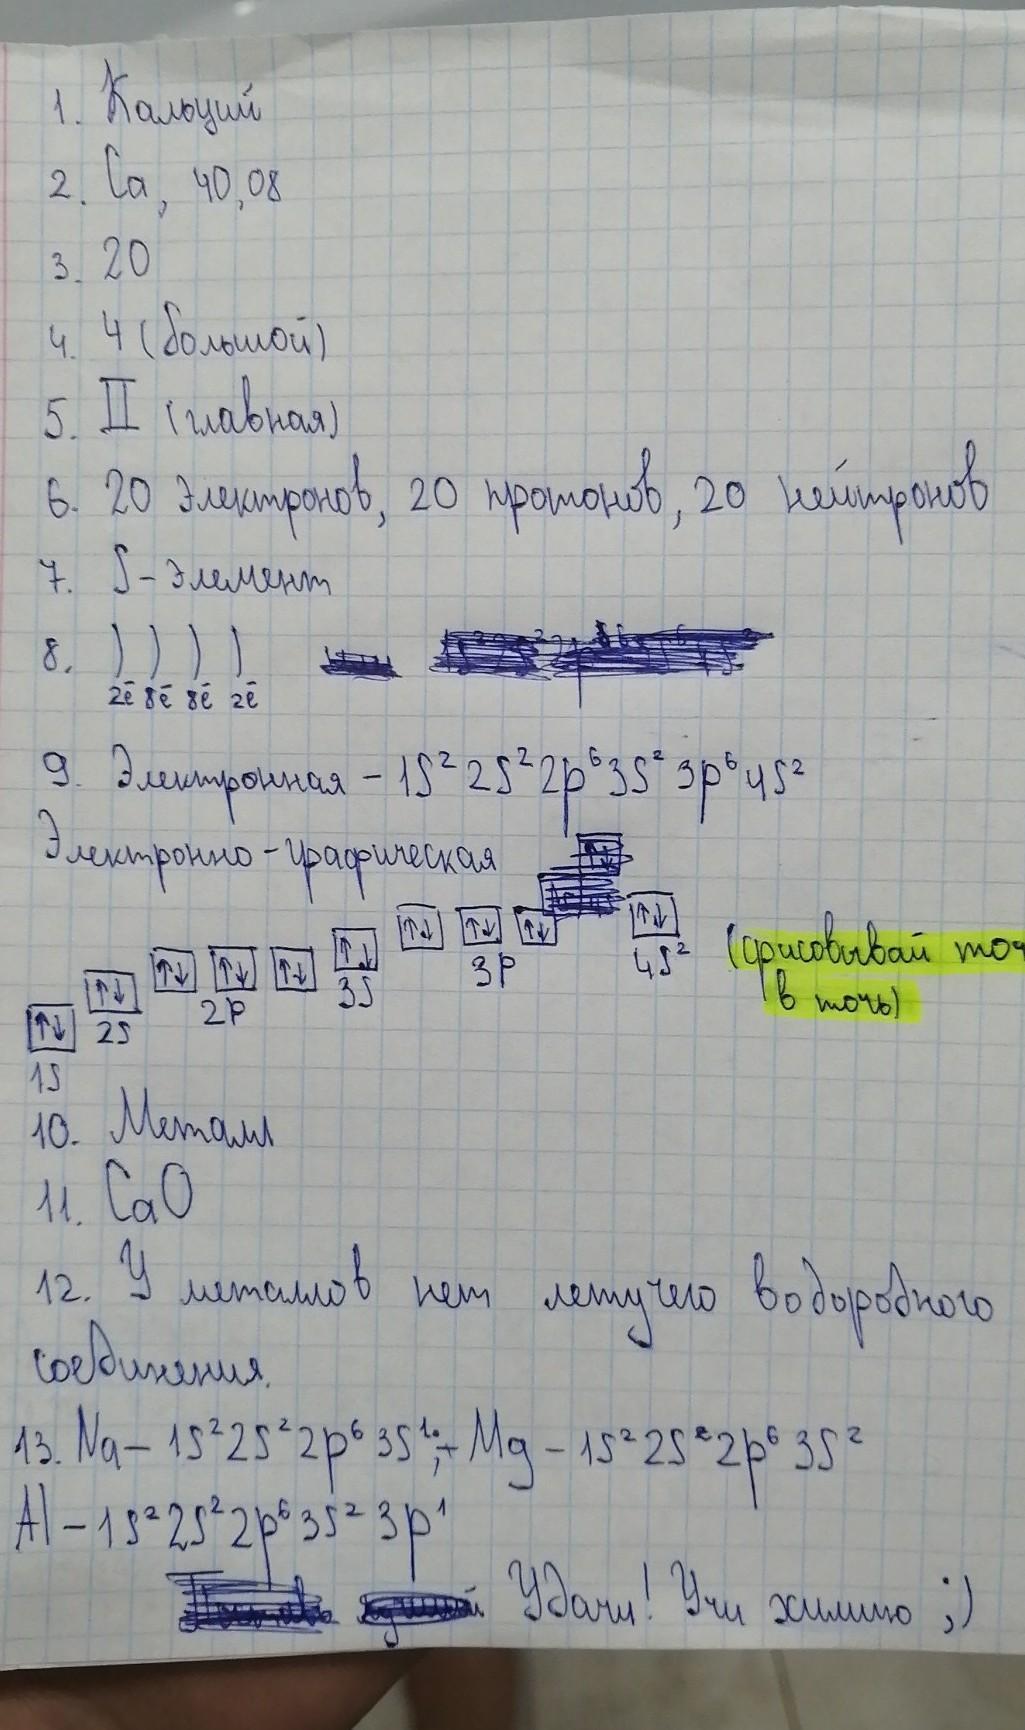 1. Кальций
2. Ca, 40,08
3. 20
4. 4 (большой)
5. II (главная)
6. 20 электронов, 20 протонов, 20 нейтронов
7. S-элемент
8. ) ) ) )
2ē 8ē 8ē 2ē
9. Электронная – 1S² 2S² 2p⁶ 3S² 3p⁶ 4S²
Электронно-графическая
↑↓ ↑↓ ↑↓ ↑↓ ↑↓ ↑↓ ↑↓ ↑↓ ↑↓ ↑↓
1S 2S 2P 3S 3P 4S² (срисовывай точ
в точь)
10. Металл
11. CaO
12. У металлов нет летучего водородного
соединения.
13. Na – 1S² 2S² 2p⁶ 3S¹; Mg – 1S² 2S² 2p⁶ 3S²
Al – 1S² 2S² 2p⁶ 3S² 3p¹
Удачи! Учи химию ;)